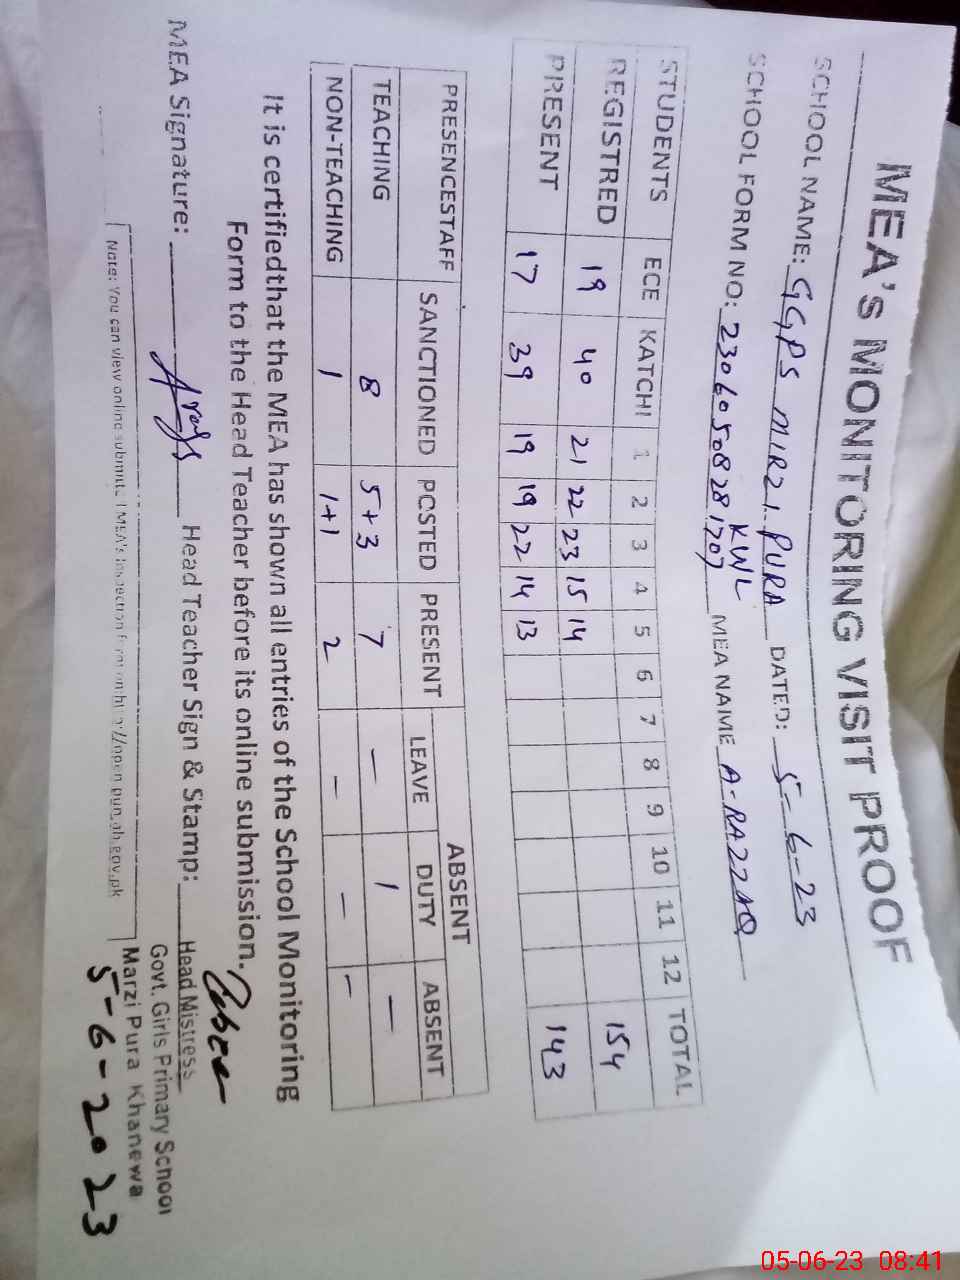 MEA's MONITORING VISIT PROOF
SCHOOL NAME: GGPS MIRZI PURA KWL DATED: 5-6-23
SCHOOL FORM NO: 23060508281707 MEA NAME A-RAZZAQ
STUDENTS ECE KATCHI 1 2 3 4 5 6 7 8 9 10 11 12 TOTAL
REGISTRED 19 40 21 22 23 15 14 154
PRESENT 17 39 19 19 22 14 13 143
PRESENCESTAFF SANCTIONED POSTED PRESENT ABSENT
LEAVE DUTY ABSENT
TEACHING 8 5+3 7 — 1 —
NON-TEACHING 1 1+1 2 — — —
It is certifiedthat the MEA has shown all entries of the School Monitoring
Form to the Head Teacher before its online submission.
MEA Signature: Head Teacher Sign & Stamp:
Head Mistress
Govt. Girls Primary School
Marzi Pura Khanewa
5-6-2023
Note: You can view online submitted MEA's inspection form on
05-06-23 08:41